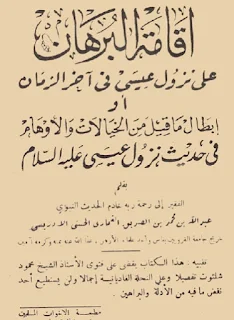 اقامة البرهان
على نزول عيسى في آخر الزمان
أو
إبطال ما قيل من الخيالات والأوهام
في حديث نزول عيسى عليه السلام
بقلم
الفقير إلى رحمة ربه خادم الحديث النبوي
عبدالله بن محمد بن الصديق الغماري الحسني الادريسي
خريج جامعة القرويين بفاس وأحد علماء الأزهر
تنبيه : هذا الكتاب يقضى على فتوى الأستاذ الشيخ محمود
شلتوت تفصيلا وعلى النحلة القاديانية إجمالا ولن يستطيع أحد
نقض ما فيه من الأدلة والبراهين .
مطبعة الاخوان المسلمين